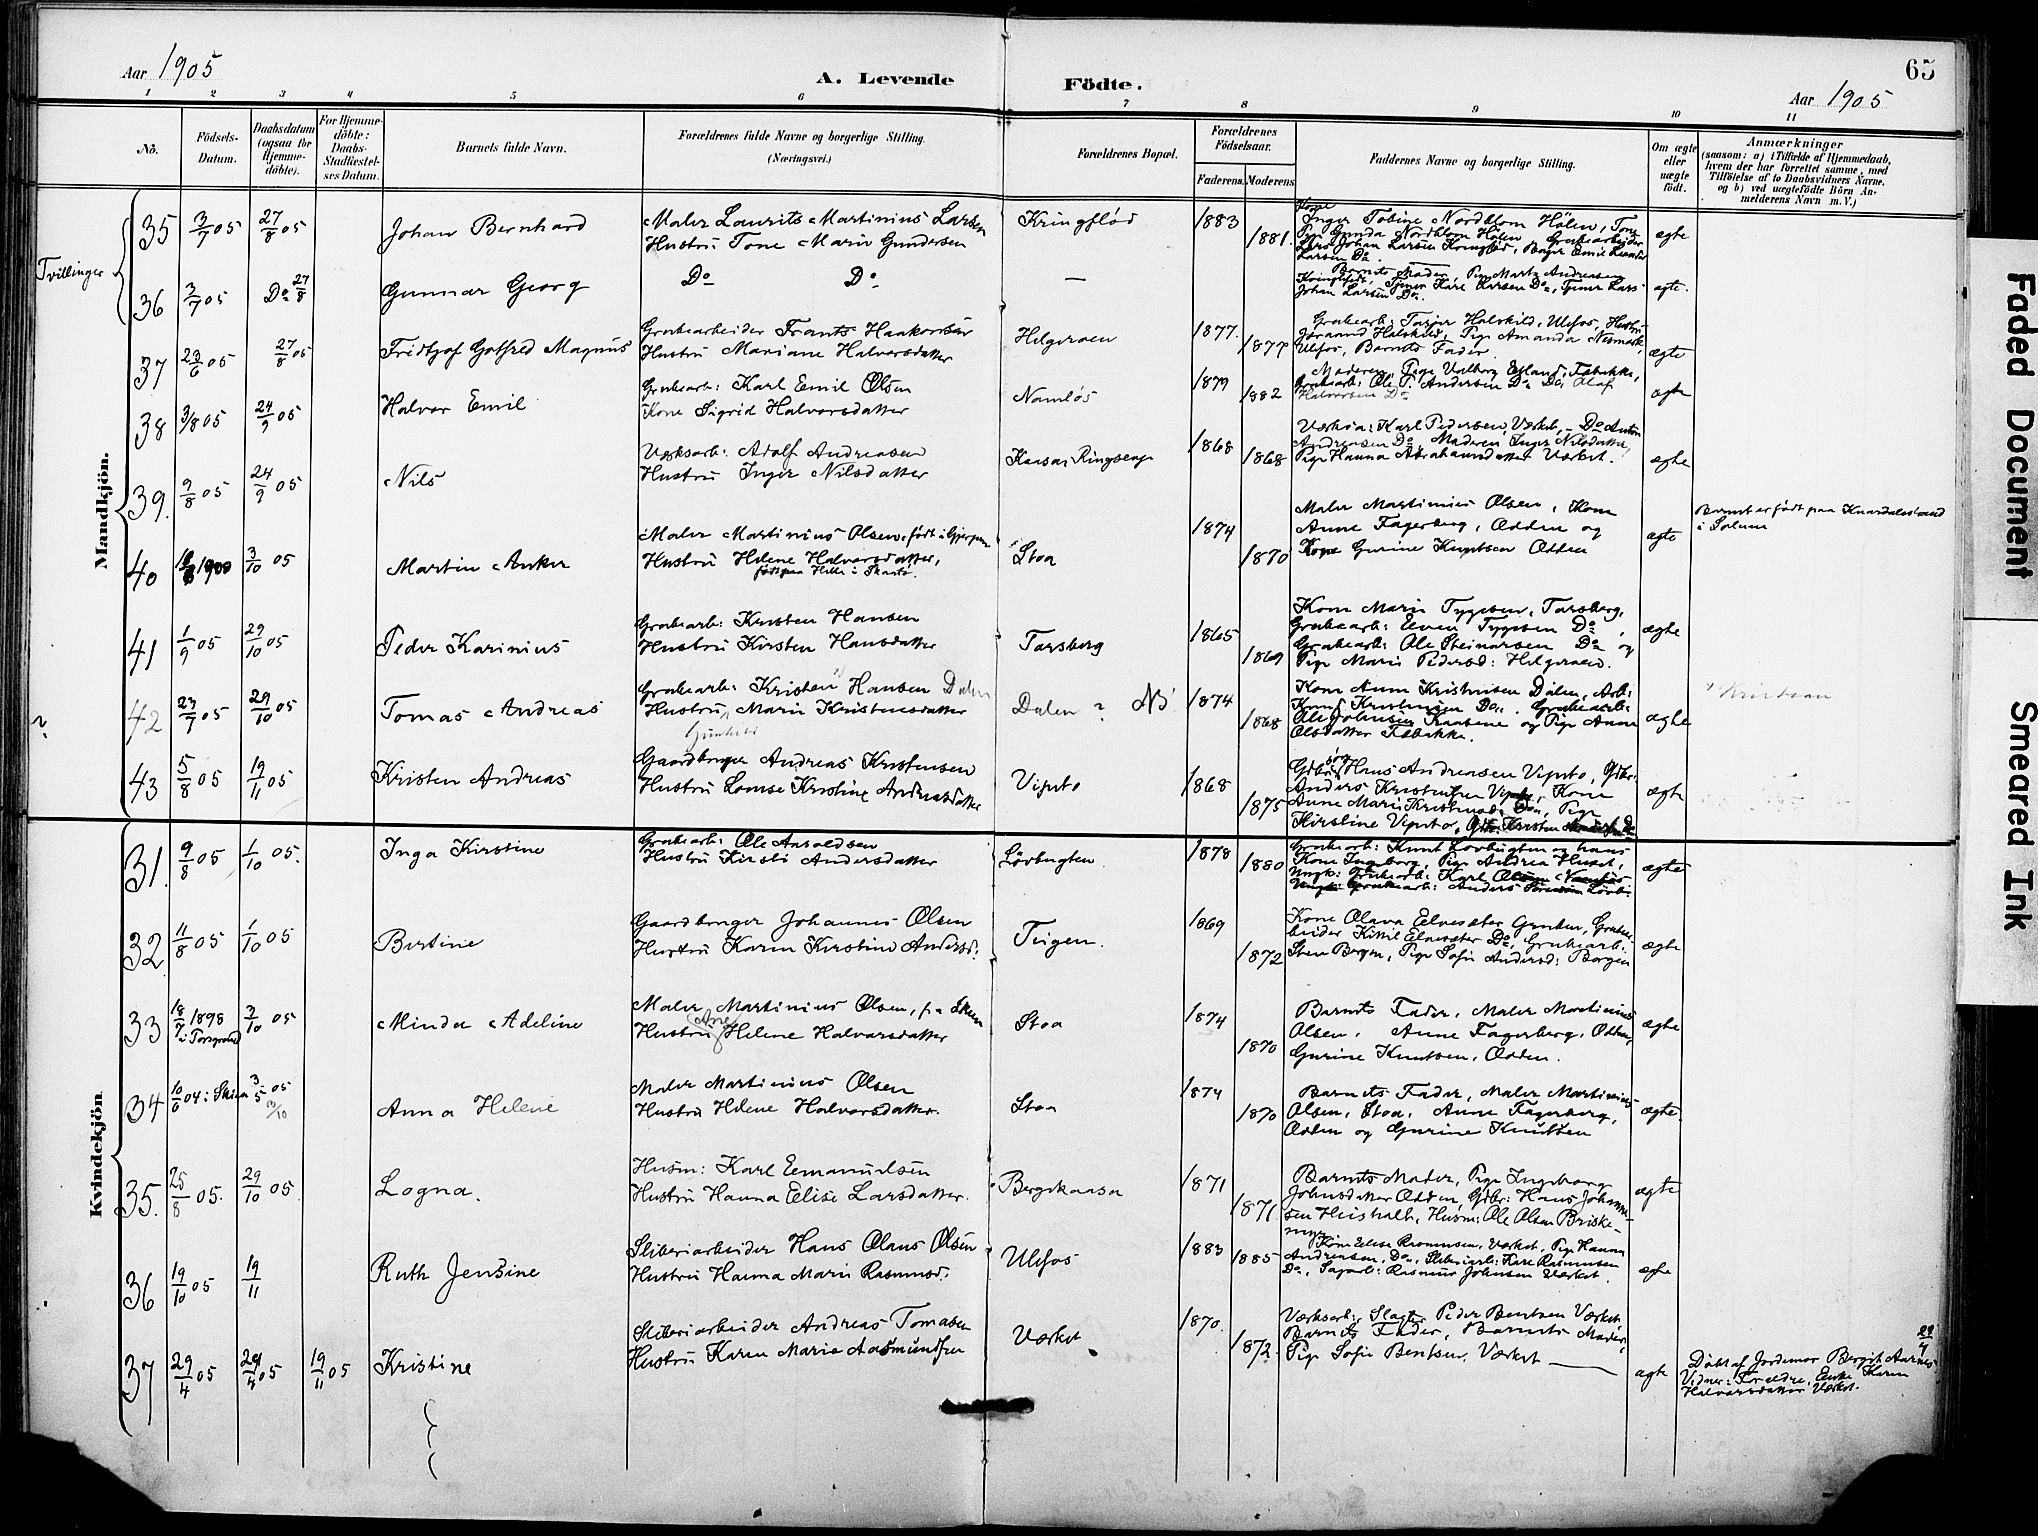 Aar 1905
A. Levende Födte.
65
Aar 1905
1 2 3 4 5 6 7 8 9 10 11
No.
Födsels-Datum.
Daabsdatum (ogsaa for Hjemme-döbte).
For Hjemme-döbte: Daabs-Stadfæstel-ses Datum.
Barnets fulde Navn.
Forældrenes fulde Navne og borgerlige Stilling. (Næringsvei.)
Forældrenes Bopæl.
Forældrenes Födselsaar.
Faderens. Moderens.
Faddernes Navne og borgerlige Stilling.
Om ægte eller uægte födt.
Anmærkninger
(saasom: a) i Tilfælde af Hjemmedaab, hvem der har forrettet samme, med Tilföielse af to Daabsvidners Navne, og b) ved uægtefödte Börn An-melderens Navn m. V.)
Mandkjön.
Tvillinger
35 3/7 05 27/8 05 Johan Bernhard
Maler Laurits Martinius Larsen
Hustru Tone Marie Gundersen
Kringlød 1883 1881
Inger Tobine Nordblom Hölen,
Pige Gunda Nordblom Hölen Grubearbeider
Johan Larsen
Larsen Do.
ægte
36 3/7 05 Do 27/8 Gunnar Georg
Do Do —
Barnets Moder, Pige Marte Andreasen
Karl Larsen Do,
Johan Larsen Do.
ægte.
37 23/6 05 27/8 05 Fridtjof Gotfred Magnus
Grubearbeider Frants Haakonsen
Hustru Mariane Halvorsdatter
Helgeroen 1877. 1877
Grubearb: Halskild, Ulefos, Hustru
Halskild, Pige Amanda
Ulefos, Barnets Fader.
ægte
38 3/8 05 24/9 05 Halvor Emil
Grubearb: Karl Emil Olsen
Kone Sigrid Halvorsdatter
Namløs 1879 1882
Moderen, Pige Valborg Fabrikke,
Grubearb: Ole P. Andersen Do Do, Olaf
Halvorsen Do
ægte
39. 9/8 05 24/9 05 Nils
Værksarb: Adolf Andreasen
Hustru Inger Nilsdatter
Kaasa Ringseng 1868 1868
Karl Pedersen, Værket, – Do Anton
Andreasen Do, Moderen Inger Nilsdatter
Pige Hanna Abrahamsdatter Værket.
ægte
40 1900 3/10 05 Martin Anker
Maler Martinius Olsen, født i Gjerpen
Hustru Helene Halvorsdatter,
født paa Helle i Skaatø.
Stoa 1874 1870
Maler Martinius Olsen, Kone
Anne Fagerberg, Odden og
Kone Gurine Knutsen Odden
ægte
Barnet er født paa Knardalstrand
i Solum
41 1/9 05 29/10 05 Peder Karinius
Grubearb: Kristen Hansen
Hustru Kirsten Hansdatter
Torsberg 1865 1869
Kone Marie Tygesen, Torsberg,
Grubearb: Even Tygesen Do,
Grubearb: Ole Steinarsen Do og
Pige Marie Pedersd: Helgeroen.
ægte
42 23/7 05 29/10 05 Tomas Andreas
Grubearb: Kristen Hansen Dalen
Hustru Marie Kristensdatter
Gunhild
Dalen ? NB 1874 1868
Kone Anne Kristensen Dalen, Arb:
Knut Kristensen Do. Grubearb:
Ole Johnsen Kaasene og Pige Anne
Olsdatter Fabrikke.
ægte
43 5/8 05 19/11 05 Kristen Andreas
Gaardbruger Andreas Kristensen
Hustru Louise Kristine Andreasdatter
Vipeto 1868 1875
Hans Andreasen Vipeto, Gdbr:
Anders Kristensen Vipeto, Kone
Anne Marie Kristensd: Do, Pige
Kirstine Vipeto, Gdbr: Kristen
ægte
Kvindekjön
31. 9/8 05 1/10 05. Inga Kirstine
Grubearb: Ole Aaroldsen
Hustru Kirsti Andersdatter
Løvbugten. 1878 1880
Grubearb: Knut Lovbugten og hans
Kone Ingeborg, Pige Andrea
Ungk: Grubearb: Karl Olsen Namløs
Ungk: Grubearb: Anders
ægte
32. 11/8 05 1/10 05 Bertine
Gaardbruger Johannes Olsen
Hustru Karen Kirstine Andersd:
Teigen. 1869 1872
Kone Olava Elvesæter Gruben, Grubear-
beider Kittil Elvesæter Do, Grubearb:
Sten Borgen, Pige Sofie Andersd: Borgen
ægte
33 18/7 1898 i Porsgrund 3/10 05 Minda Adeline
Maler Martinius Olsen, f. i Skien
Hustru Ane Helene Halvorsdatter
Stoa 1874 1870
Barnets Fader, Maler Martinius
Olsen, Anne Fagerberg, Odden,
Gurine Knutsen, Odden.
ægte
34 10/6 04 i Skien 3/5 05 3/10 Anna Helene
Maler Martinius Olsen
Hustru Helene Halvorsdatter.
Stoa 1874 1870
Barnets Fader, Maler Martinius
Olsen, Stoa, Anne Fagerberg,
Odden og Gurine Knutsen
ægte.
35. 25/8 05. 29/10 05 Logna.
Husm: Karl Emanuelsen
Hustru Hanna Elise Larsdatter.
Bergskaasa 1871 1871.
Barnets Moder, Pige Ingeborg
Johnsdatter Odden, Gdbr: Hans Johanne-
sen Heisholt, Husm: Ole Olsen Briske-
myr
ægte
36 19/10 05 19/11 Ruth Jensine
Sliberiarbeider Hans Olaus Olsen
Hustru Hanna Marie Rasmusd.
Ulefos 1883 1885
Kone Elise Rasmussen, Værket, Pige Hanna
Andreasen, Do, Sliberiarb: Karl Rasmussen
Do, Sagarb: Rasmus Johnsen Værket.
ægte
37 29/4 05 29/4 05 19/11 05 Kristine
Sliberiarbeider Andreas Tomasen
Hustru Karen Marie Aasmundsen
Værket 1870. 1872.
Værksarb: Slagter Peder Bentsen Værket,
Barnets Fader, Barnets Moder,
Pige Sofie Bentsen, Værket
ægte
Døbt af Jordemor Bergit Aarnes 29/4
Vidner: Forældre, Enke Karen
Halvorsdatter Værket.
Faded Document
Smeared Ink